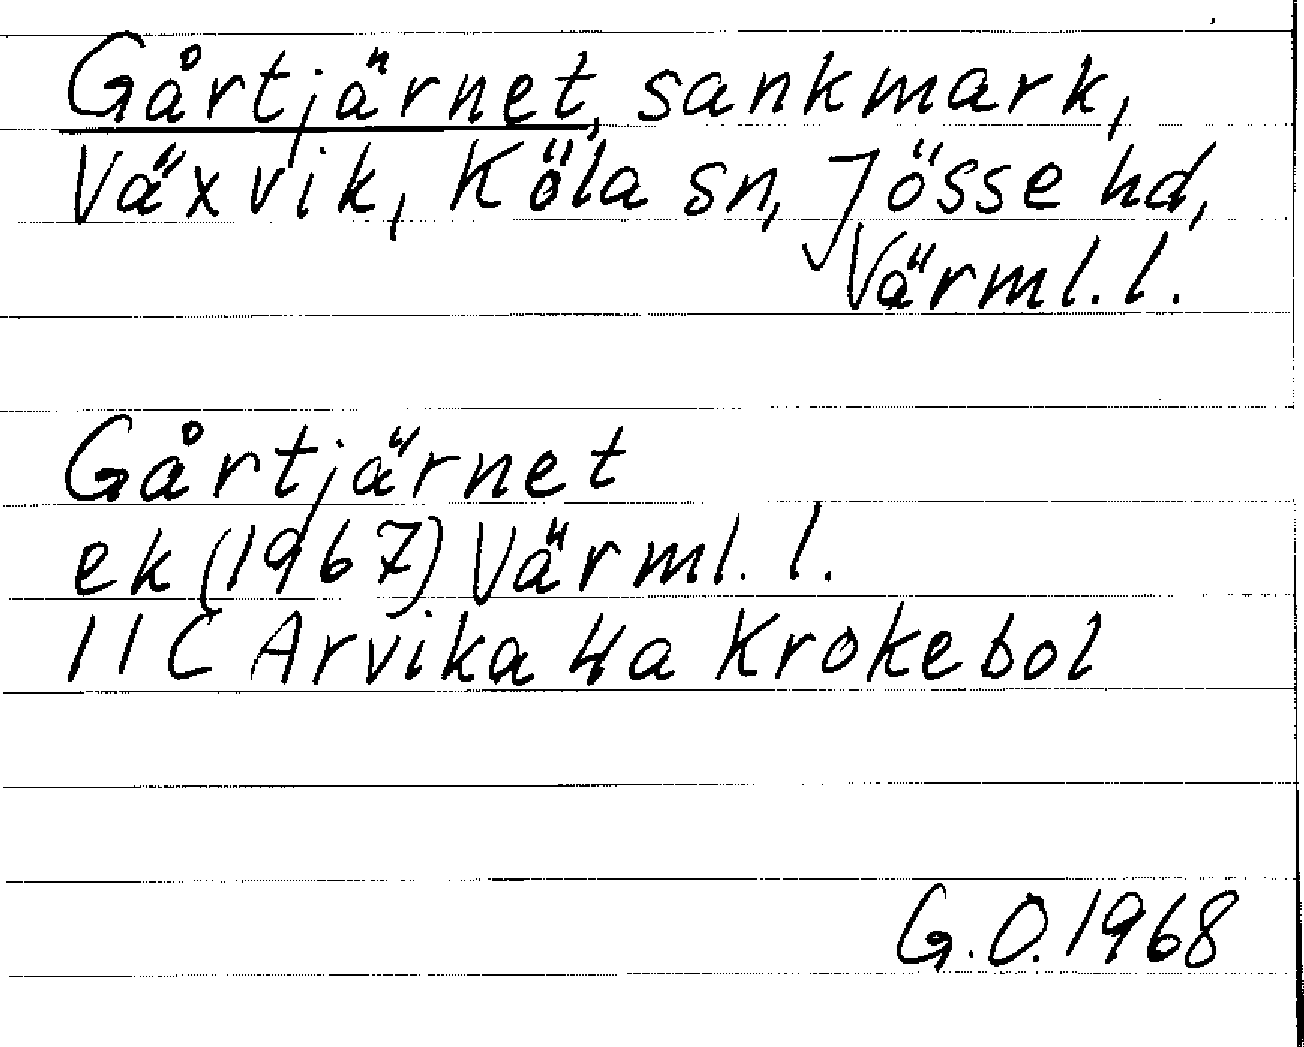 Gårtjärnet, sankmark,
Växvik, Köla sn, Jösse hd,
Värml. l.
Gårtjärnet
ek (1967) Värml. l.
11C Arvika 4a Krokebol
G.O. 1968